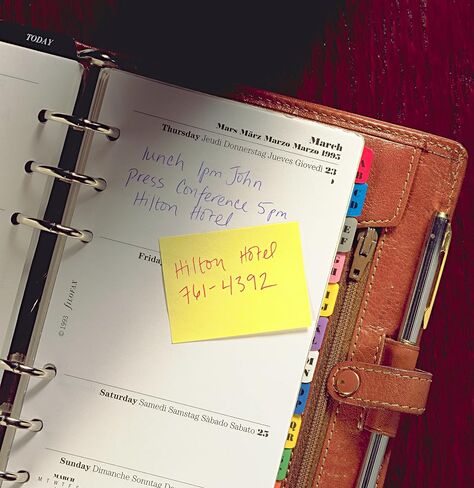 TODAY
March
Mars März Marzo Marzo 1995
Thursday Jeudi Donnerstag Jueves Giovedi 23
lunch 1pm John
Press Conference 5pm
Hilton Hotel
Friday
Hilton Hotel
761-4392
© 1993 FILOFAX
Saturday Samedi Samstag Sàbado Sabato 25
Sunday Dimanche Sonntag
MARCH
M T W T F S